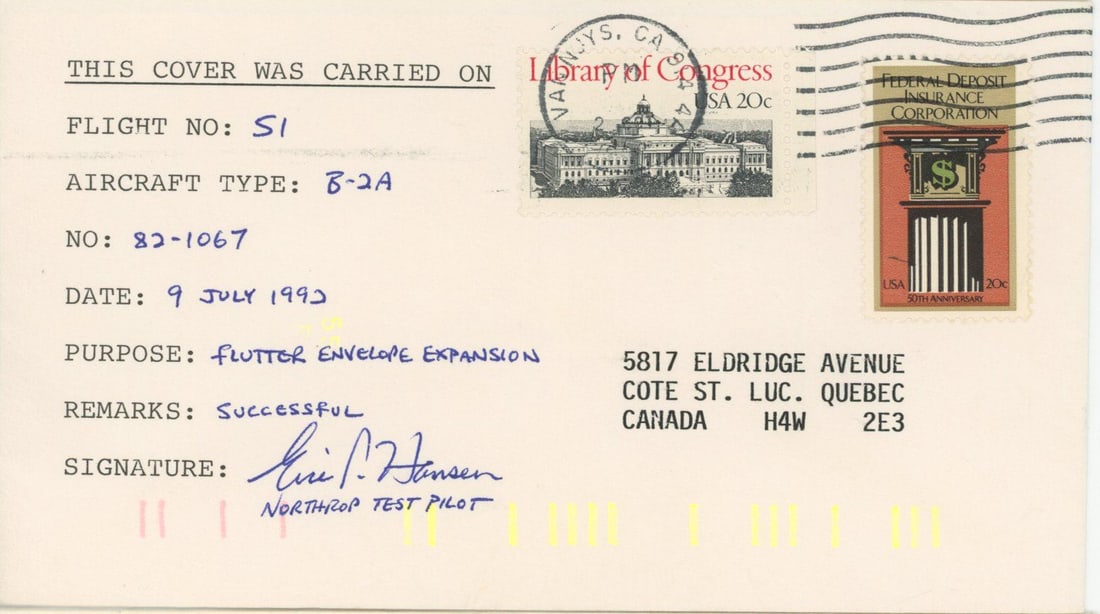 THIS COVER WAS CARRIED ON
FLIGHT NO: 51
AIRCRAFT TYPE: B-2A
NO: 82-1067
DATE: 9 JULY 1992
PURPOSE: FLUTTER ENVELOPE EXPANSION
REMARKS: SUCCESSFUL
SIGNATURE: Eric P. Hansen
NORTHROP TEST PILOT
VAN NUYS, CA
Library of Congress
USA 20c
FEDERAL DEPOSIT
INSURANCE
CORPORATION
$
USA 20c
50TH ANNIVERSARY
5817 ELDRIDGE AVENUE
COTE ST. LUC. QUEBEC
CANADA H4W 2E3